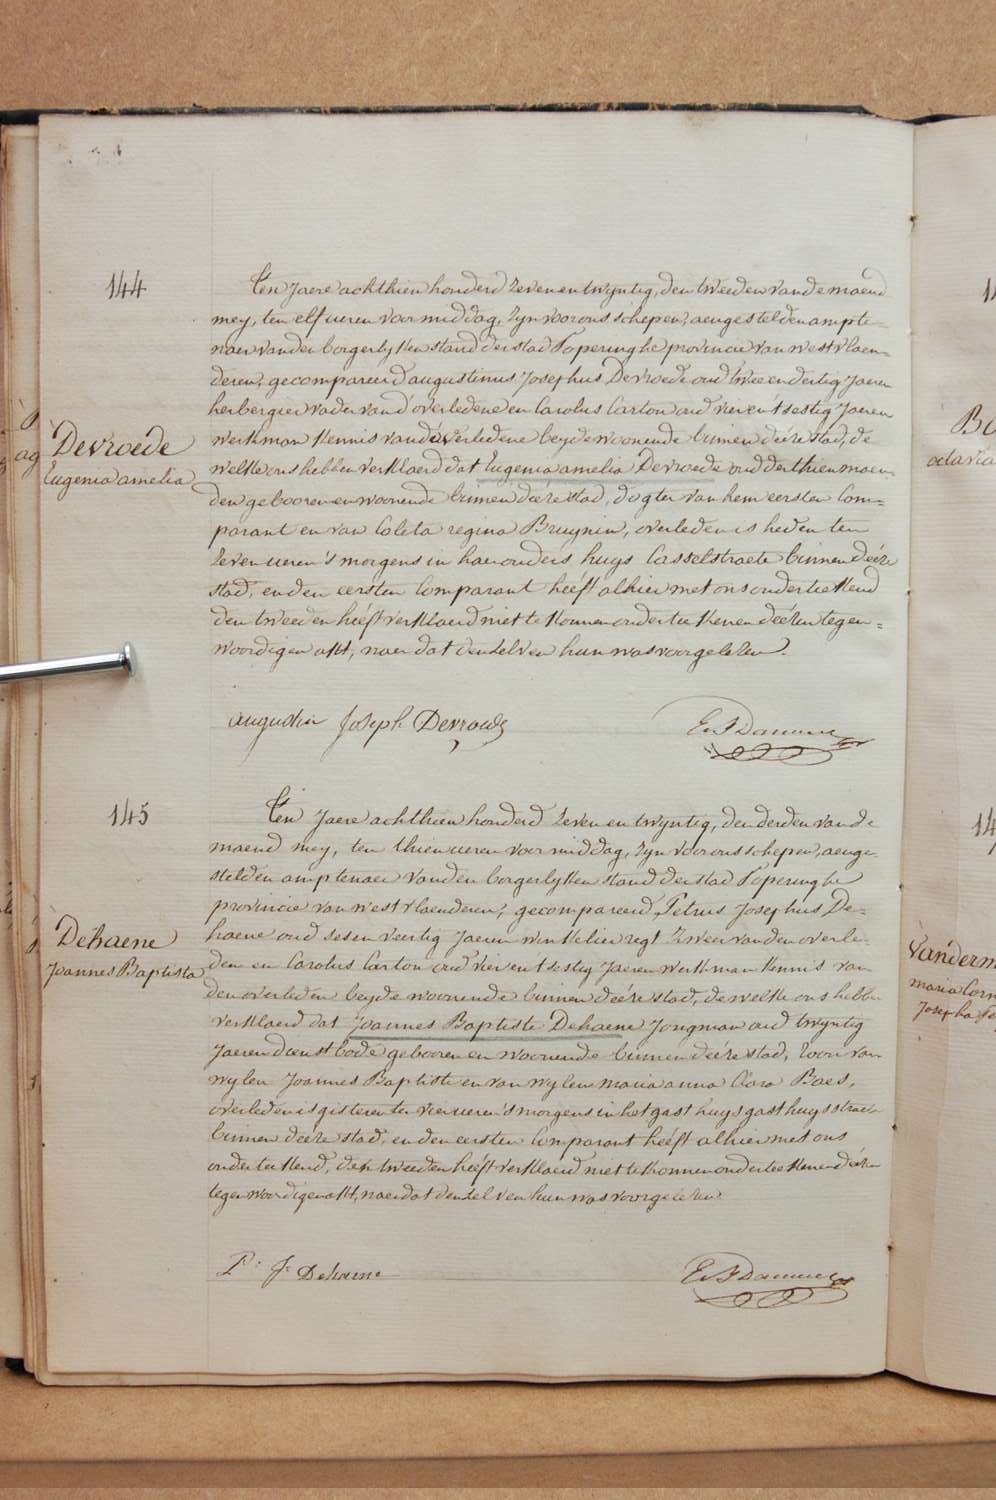 144
Devroede
Eugenia amelia
Ten Jaere achthien honderd zeven en twyntig, den tweeden van de maend
mey, ten elf ueren voormiddag, zyn voor ons schepen, aengestelden ampte=
naer van den borgerlyken stand der stad Poperinghe provincie van westvlaen=
deren, gecompareerd augustinus Josephus Devroede oud twee en dertig Jaeren
herbergier vader van d'overledene en Carolus Carton oud vier en tsestig Jaeren
werkman kennis van d'overledene beyde woonende binnen deéze stad, de
welke ons hebben verklaerd dat Eugenia amelia Devroede oud derthien maen=
den gebooren en woonende binnen deéze stad, dogter van hem eersten Com=
parant en van Coleta regina Bruynin, overleden is heden ten
zeven ueren 's morgens in haer ouders huys Casselstraete binnen deéze
stad, en den eersten Comparant heéft alhier met ons onderteekend
den tweeden heéft verklaerd niet te konnen onderteekenen deézen tegen=
woordigen akt, naer dat denzelven hun was voorgelezen.
augustin Joseph Devroede
145
Dehaene
Joannes Baptista
Ten Jaere achthien honderd zeven en twyntig, den derden van de
maend mey, ten thien ueren voormiddag, zyn voor ons schepen, aenge=
stelden amptenaer van den borgerlyken stand der stad Poperinghe
provincie van westvlaenderen, gecompareerd Petrus Josephus De=
haene oud sesenveertig Jaeren winkelier regt zweer van den overle=
den en Carolus Carton oud vier en tsestig Jaeren werkman kennis van
den overleden beyde woonende binnen deéze stad, de welke ons hebben
verklaerd dat Joannes Baptiste Dehaene Jongman oud twyntig
Jaeren dienstbode gebooren en woonende binnen deéze stad, zoon van
wylen Joannes Baptiste en van wylen maria anna Clara Baes,
overleden is gisteren ten vier ueren 's morgens in het gasthuys gasthuysstraete
binnen deéze stad, en den eersten Comparant heéft alhier met ons
onderteekend, den tweeden heéft verklaerd niet te konnen onderteekenen deézen
tegenwoordigen akt, naer dat denzelven hun was voorgelezen.
P. J. Dehaene
Vanderm
maria Corn
Josepha